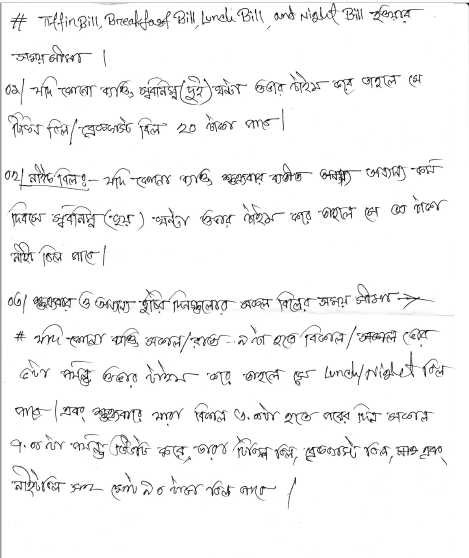 # Tiffin Bill, Breakfast Bill, Lunch Bill, and Night Bill হওয়ার
সময়সীমা |
০১/ যদি কোনো ব্যক্তি সর্বনিম্ন (দুই) ঘন্টা ওভার টাইম করে তাহলে সে
টিফিন বিল/ ব্রেকফাস্ট বিল 20 টাকা পাবে |
০২/ নাইট বিল :- যদি কোনো ব্যক্তি শুক্রবার ব্যতীত অন্যান্য কর্ম
দিবসে সর্বনিম্ন ( ) ঘন্টা ওভার টাইম করে তাহলে সে টাকা
নাইট বিল পাবে |
০৩/ শুক্রবার ও অন্যান্য ছুটির দিনগুলোর সকল বিলের সময় সীমা →
# যদি কোনো ব্যক্তি সকাল/রাত ৯ টা হতে বিকাল/সকাল ভোর
৫টা পর্যন্ত ওভার টাইম করে তাহলে সে Lunch/Night বিল
পাবে | এবং শুক্রবারে যারা বিকাল হতে পরের দিন সকাল
পর্যন্ত ডিউটি করে, তারা টিফিন বিল, ব্রেকফাস্ট বিল, এবং
নাইট বিল সহ মোট ৯০ টাকা বিল পাবে |